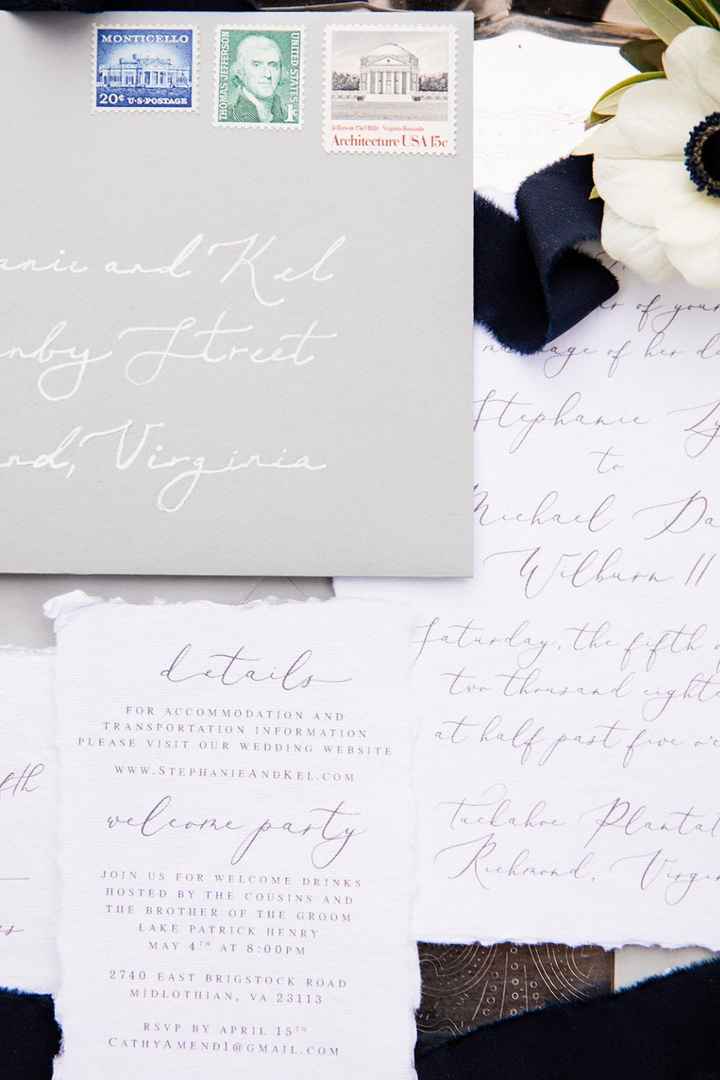 MONTICELLO
20¢ U·S·POSTAGE
THOMAS JEFFERSON
UNITED STATES
1¢
Architecture USA 15c
and Kel
Street
Virginia
of your
marriage of her
Stephanie
to
Michael
Wilburn II
Saturday, the fifth
two thousand
at half past five
Tuckahoe
Richmond,
details
FOR ACCOMMODATION AND
TRANSPORTATION INFORMATION
PLEASE VISIT OUR WEDDING WEBSITE
WWW.STEPHANIEANDKEL.COM
welcome party
JOIN US FOR WELCOME DRINKS
HOSTED BY THE COUSINS AND
THE BROTHER OF THE GROOM
LAKE PATRICK HENRY
MAY 4TH AT 8:00PM
2740 EAST BRIGSTOCK ROAD
MIDLOTHIAN, VA 23113
RSVP BY APRIL 15TH
CATHYAMEND1@GMAIL.COM